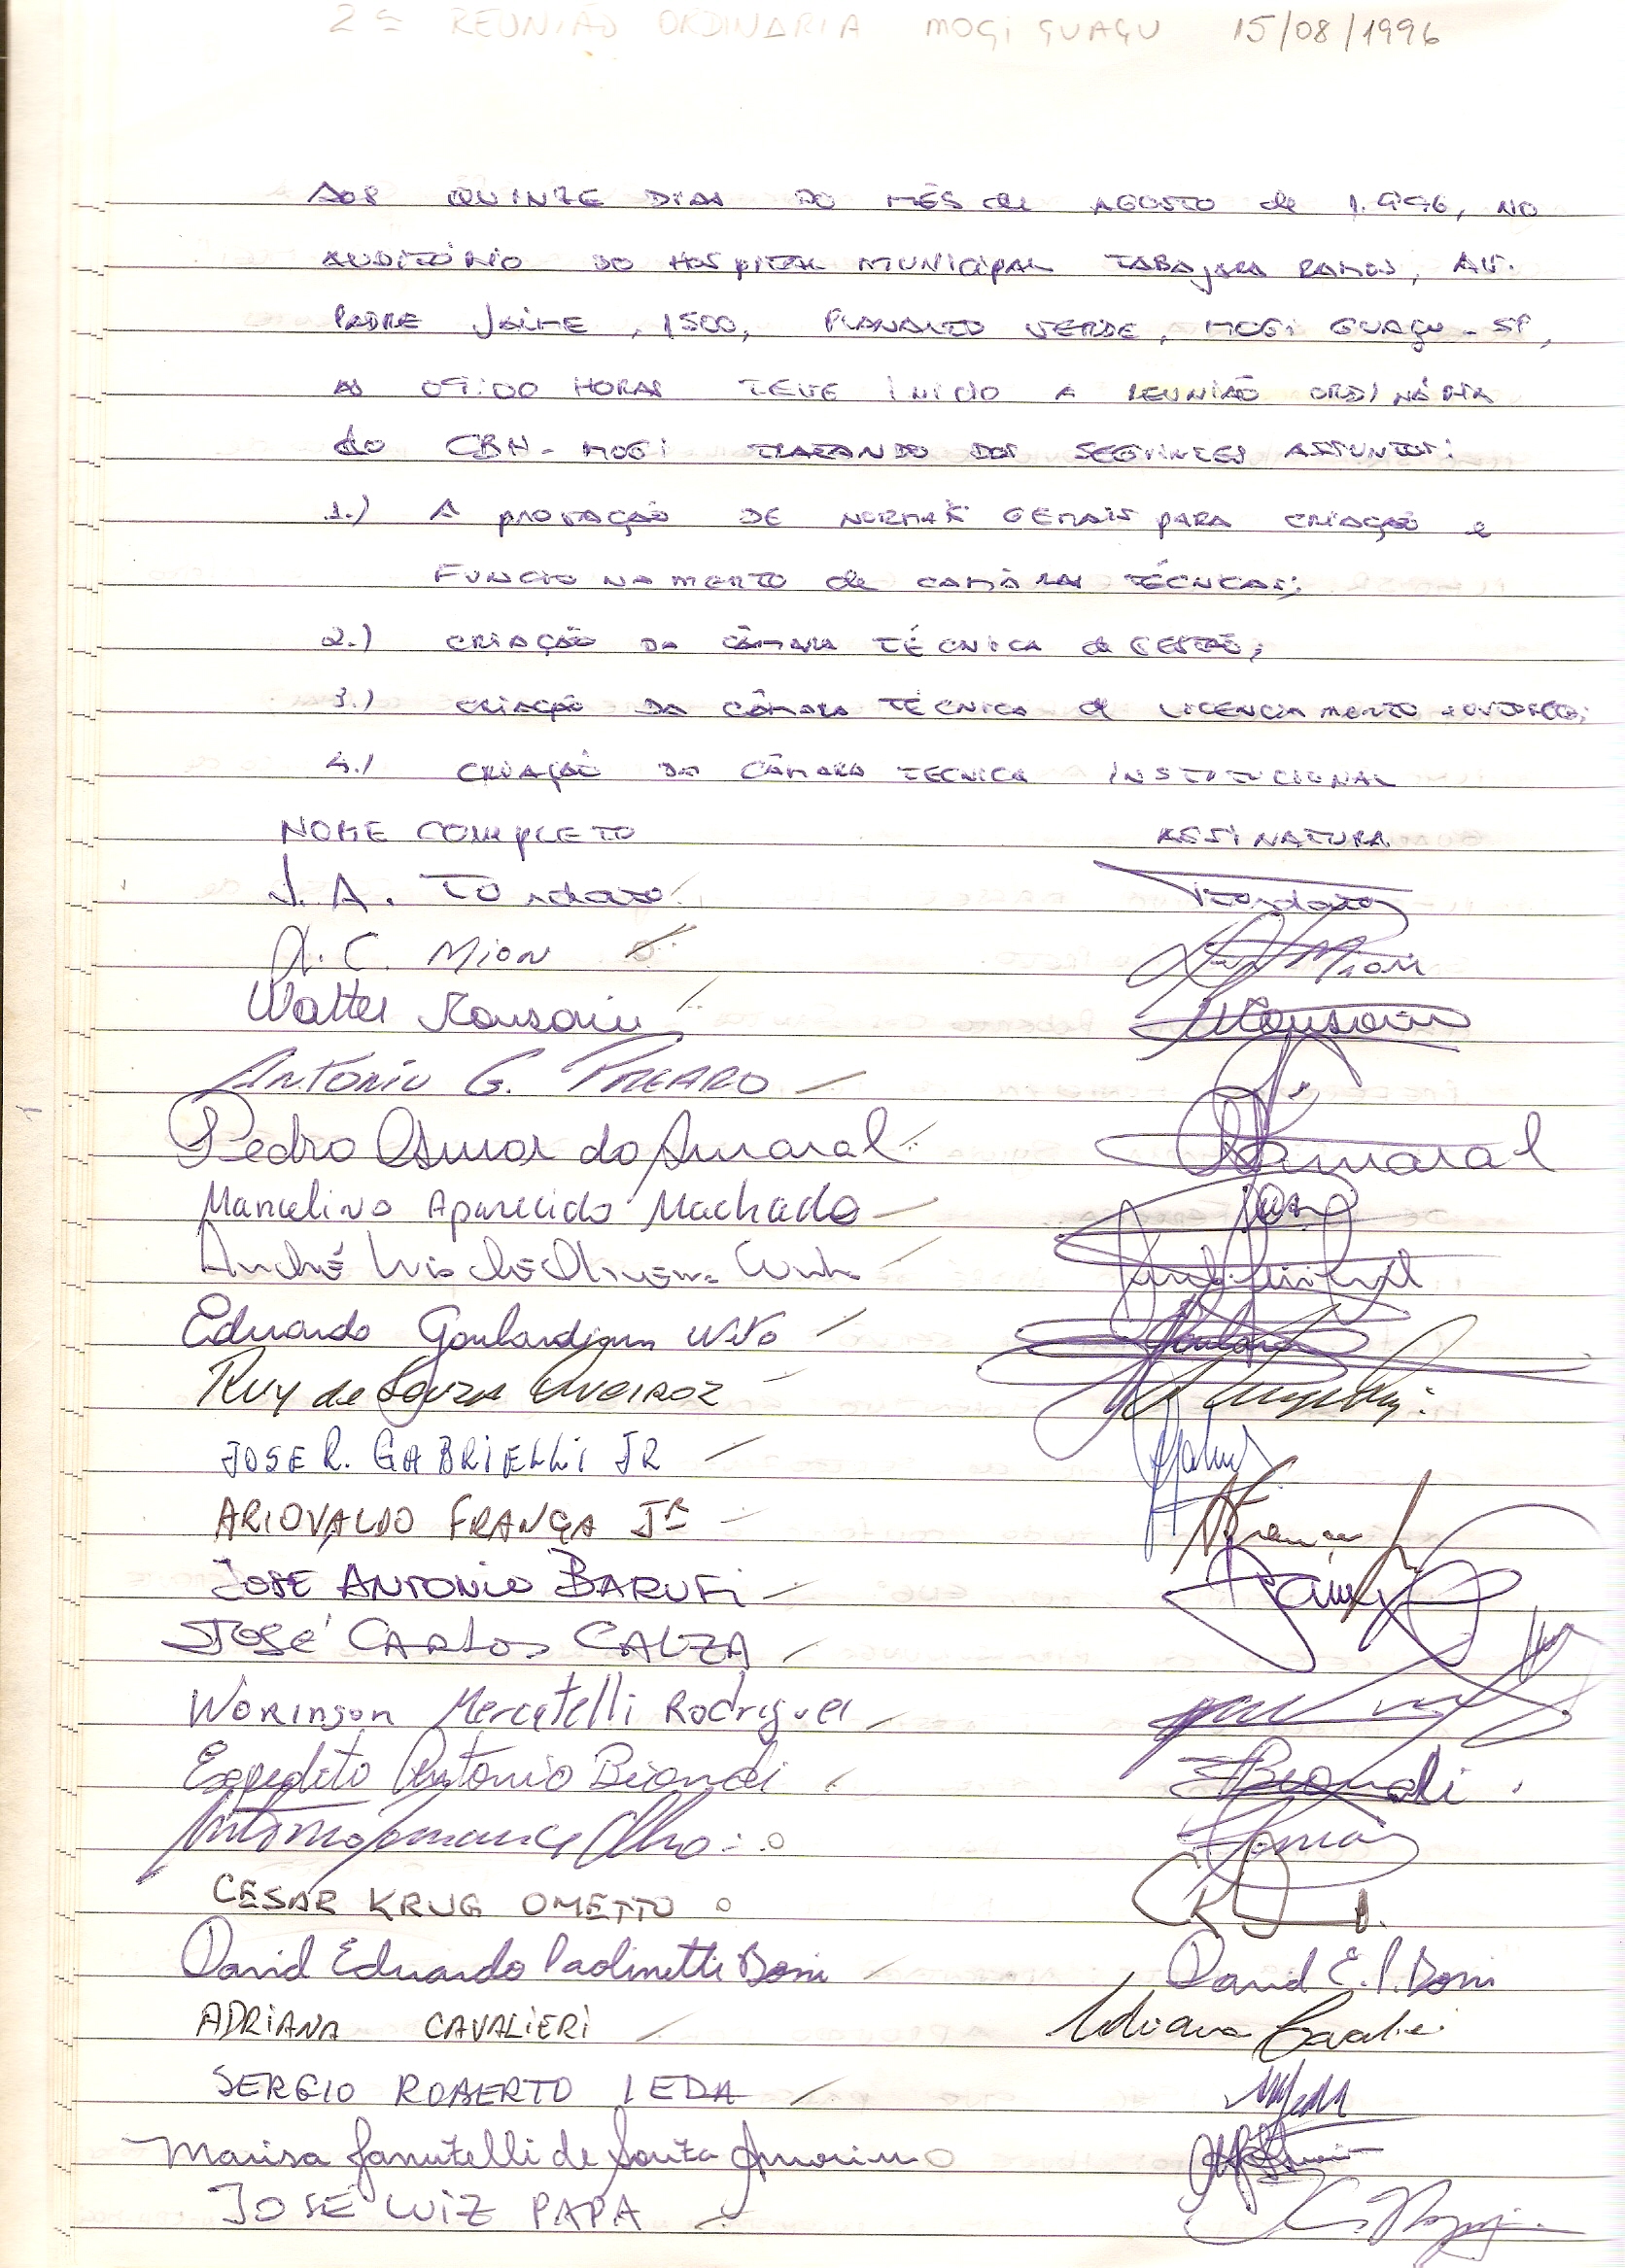 2ª REUNIÃO ORDINARIA MOGI GUAÇU 15/08/1996
AOS QUINZE DIAS DO MÊS de AGOSTO de 1.996, NO
AUDITÓRIO DO HOSPITAL MUNICIPAL TABAJARA RAMOS, AV.
PADRE JAIME, 1500, PLANALTO VERDE, MOGI GUAÇU - SP,
AS 09:00 HORAS TEVE INICIO A REUNIÃO ORDINÁRIA
do CBH - MOGI TRATANDO DOS SEGUINTES ASSUNTOS:
1.) APROVAÇÃO DE NORMAS GERAIS PARA CRIAÇÃO e
FUNCIONAMENTO de CAMÂRAS TÉCNICAS;
2.) CRIAÇÃO DA CÂMARA TÉCNICA de GESTÃO;
3.) CRIAÇÃO DA CÂMARA TÉCNICA de LICENCIAMENTO
4.) CRIAÇÃO DA CÂMARA TECNICA INSTITUCIONAL
NOME COMPLETO ASSINATURA
J. A. Tondato
A. C. Mion Mion
Walter
ANTONIO G.
Pedro Osmar do Amaral Amaral
Marcelino Aparecido Machado
André Luis de Oliveira
Eduardo Neto
RUY de SOUZA QUEIROZ
JOSE R. GABRIELLI JR
ARIOVALDO FRANÇA Jr
JOSE ANTONIO BARUFI
JOSÉ CARLOS CALZA
Worinson Mercatelli Rodrigues
Expedito Antonio Biondi EBiondi
Antonio
CESAR KRUG OMETTO
David Eduardo Paolinetti Boni David E. P. Boni
ADRIANA CAVALIERI Adriana
SERGIO ROBERTO LEDA
Marisa Fanutelli de Souza Amorim
JOSÉ LUIZ PAPA